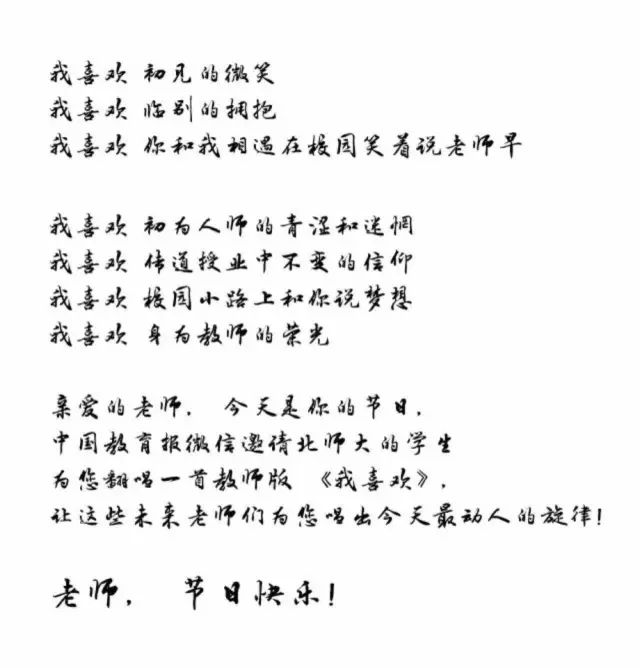 我喜欢 初见的微笑
我喜欢 临别的拥抱
我喜欢 你和我相遇在校园笑着说老师早
我喜欢 初为人师的青涩和迷惘
我喜欢 传道授业中不变的信仰
我喜欢 校园小路上和你说梦想
我喜欢 身为教师的荣光
亲爱的老师， 今天是你的节日，
中国教育报微信邀请北师大的学生
为您翻唱一首教师版 《我喜欢》，
让这些未来老师们为您唱出今天最动人的旋律！
老师， 节日快乐！